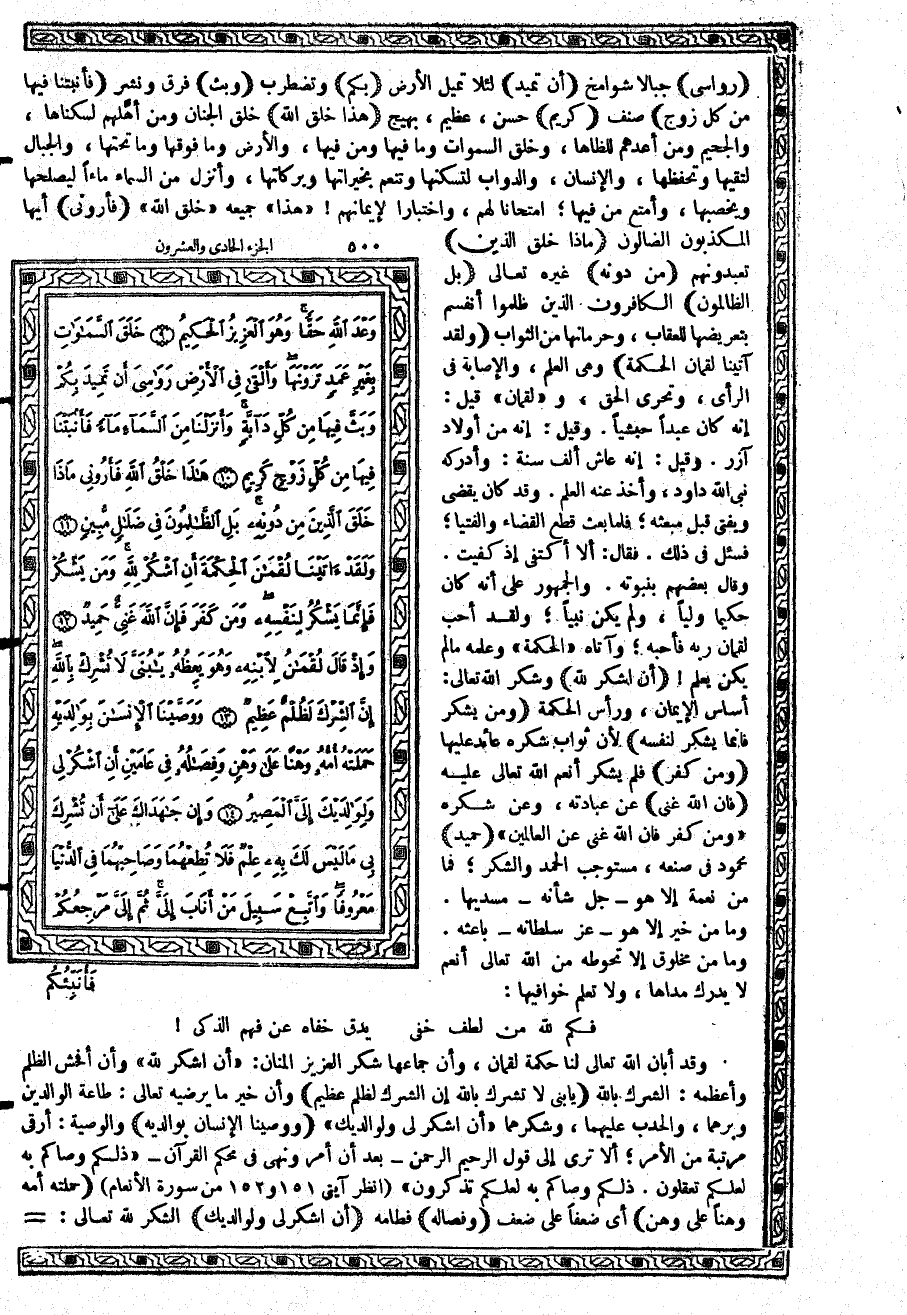 (رواسى) جبالا شوامخ (أن تميد) لئلا تميل الأرض (بكم) وتضطرب (وبث) فرق ونشر (فأنبتنا فيها
من كل زوج) صنف (كريم) حسن، عظيم، بهيج (هذا خلق الله) خلق الجنان ومن أهلهم لسكناها،
والجحيم ومن أعدهم للظاها، وخلق السموات وما فيها ومن فيها، والأرض وما فوقها وما تحتها، والجبال
لتقيها وتحفظها، والإنسان، والدواب لتسكنها وتنعم بخيراتها وبركاتها، وأنزل من السماء ماءاً ليصلحها
ويخصبها، وأمتع من فيها؛ امتحانا لهم، واختبارا لإيمانهم! «هذا» جميعه «خلق الله» (فأرونى) أيها
المكذبون الضالون (ماذا خلق الذين)
تعبدونهم (من دونه) غيره تعالى (بل
الظالمون) الكافرون الذين ظلموا أنفسهم
بتعريضها للعقاب، وحرمانها من الثواب (ولقد
آتينا لقمان الحكمة) وهى العلم، والإصابة فى
الرأى، وتحرى الحق، و «لقمان» قيل:
إنه كان عبداً حبشياً. وقيل: إنه من أولاد
آزر. وقيل: إنه عاش ألف سنة: وأدركه
نبى الله داود، وأخذ عنه العلم. وقد كان يقضى
ويفتى قبل مبعثه؛ فلما بعث قطع القضاء والفتيا؛
فسئل فى ذلك. فقال: ألا أكتفى إذ كفيت.
وقال بعضهم بنبوته. والجمهور على أنه كان
حكيما ولياً، ولم يكن نبياً؛ ولقد أحب
لقمان ربه فأحبه؛ وآتاه «الحكمة» وعلمه مالم
يكن يعلم! (أن اشكر لله) وشكر الله تعالى:
أساس الإيمان، ورأس الحكمة (ومن يشكر
فانما يشكر لنفسه) لأن ثواب شكره عائد عليها
(ومن كفر) فلم يشكر أنعم الله تعالى عليه
(فان الله غنى) عن عبادته، وعن شكره
«ومن كفر فان الله غنى عن العالمين» (حميد)
محمود فى صنعه، مستوجب الحمد والشكر؛ فما
من نعمة إلا هو ــ جل شأنه ــ مسديها.
وما من خير إلا هو ــ عز سلطانه ــ باعثه.
وما من مخلوق إلا تحوطه من الله تعالى أنعم
لا يدرك مداها، ولا تعلم خوافيها:
٥٠٠ الجزء الحادى والعشرون
وَعْدَ ٱللَّهِ حَقًّا ۚ وَهُوَ ٱلْعَزِيزُ ٱلْحَكِيمُ ۝٩ خَلَقَ ٱلسَّمَٰوَٰتِ
بِغَيْرِ عَمَدٍ تَرَوْنَهَا ۖ وَأَلْقَىٰ فِى ٱلْأَرْضِ رَوَٰسِىَ أَن تَمِيدَ بِكُمْ
وَبَثَّ فِيهَا مِن كُلِّ دَآبَّةٍ ۚ وَأَنزَلْنَا مِنَ ٱلسَّمَآءِ مَآءً فَأَنۢبَتْنَا
فِيهَا مِن كُلِّ زَوْجٍ كَرِيمٍ ۝١٠ هَٰذَا خَلْقُ ٱللَّهِ فَأَرُونِى مَاذَا
خَلَقَ ٱلَّذِينَ مِن دُونِهِۦ ۚ بَلِ ٱلظَّٰلِمُونَ فِى ضَلَٰلٍ مُّبِينٍ ۝١١
وَلَقَدْ ءَاتَيْنَا لُقْمَٰنَ ٱلْحِكْمَةَ أَنِ ٱشْكُرْ لِلَّهِ ۚ وَمَن يَشْكُرْ
فَإِنَّمَا يَشْكُرُ لِنَفْسِهِۦ ۖ وَمَن كَفَرَ فَإِنَّ ٱللَّهَ غَنِىٌّ حَمِيدٌ ۝١٢
وَإِذْ قَالَ لُقْمَٰنُ لِٱبْنِهِۦ وَهُوَ يَعِظُهُۥ يَٰبُنَىَّ لَا تُشْرِكْ بِٱللَّهِ ۖ
إِنَّ ٱلشِّرْكَ لَظُلْمٌ عَظِيمٌ ۝١٣ وَوَصَّيْنَا ٱلْإِنسَٰنَ بِوَٰلِدَيْهِ
حَمَلَتْهُ أُمُّهُۥ وَهْنًا عَلَىٰ وَهْنٍ وَفِصَٰلُهُۥ فِى عَامَيْنِ أَنِ ٱشْكُرْ لِى
وَلِوَٰلِدَيْكَ إِلَىَّ ٱلْمَصِيرُ ۝١٤ وَإِن جَٰهَدَاكَ عَلَىٰٓ أَن تُشْرِكَ
بِى مَا لَيْسَ لَكَ بِهِۦ عِلْمٌ فَلَا تُطِعْهُمَا ۖ وَصَاحِبْهُمَا فِى ٱلدُّنْيَا
مَعْرُوفًا ۖ وَٱتَّبِعْ سَبِيلَ مَنْ أَنَابَ إِلَىَّ ۚ ثُمَّ إِلَىَّ مَرْجِعُكُمْ
فَأُنَبِّئُكُم
فكم لله من لطف خفى يدق خفاه عن فهم الذكى!
وقد أبان الله تعالى لنا حكمة لقمان، وأن جماعها شكر العزيز المنان: «أن اشكر لله» وأن أفحش الظلم
وأعظمه: الشرك بالله (يابنى لا تشرك بالله إن الشرك لظلم عظيم) وأن خير ما يرضيه تعالى: طاعة الوالدين
وبرهما، والحدب عليهما، وشكرهما «أن اشكر لى ولوالديك» (ووصينا الإنسان بوالديه) والوصية: أرقى
مرتبة من الأمر؛ ألا ترى إلى قول الرحيم الرحمن ــ بعد أن أمر ونهى فى محكم القرآن ــ «ذلكم وصاكم به
لعلكم تعقلون. ذلكم وصاكم به لعلكم تذكرون» (انظر آيتى ١٥١ و١٥٢ من سورة الأنعام) (حملته أمه
وهناً على وهن) أى ضعفاً على ضعف (وفصاله) فطامه (أن اشكرلى ولوالديك) الشكر لله تعالى: =